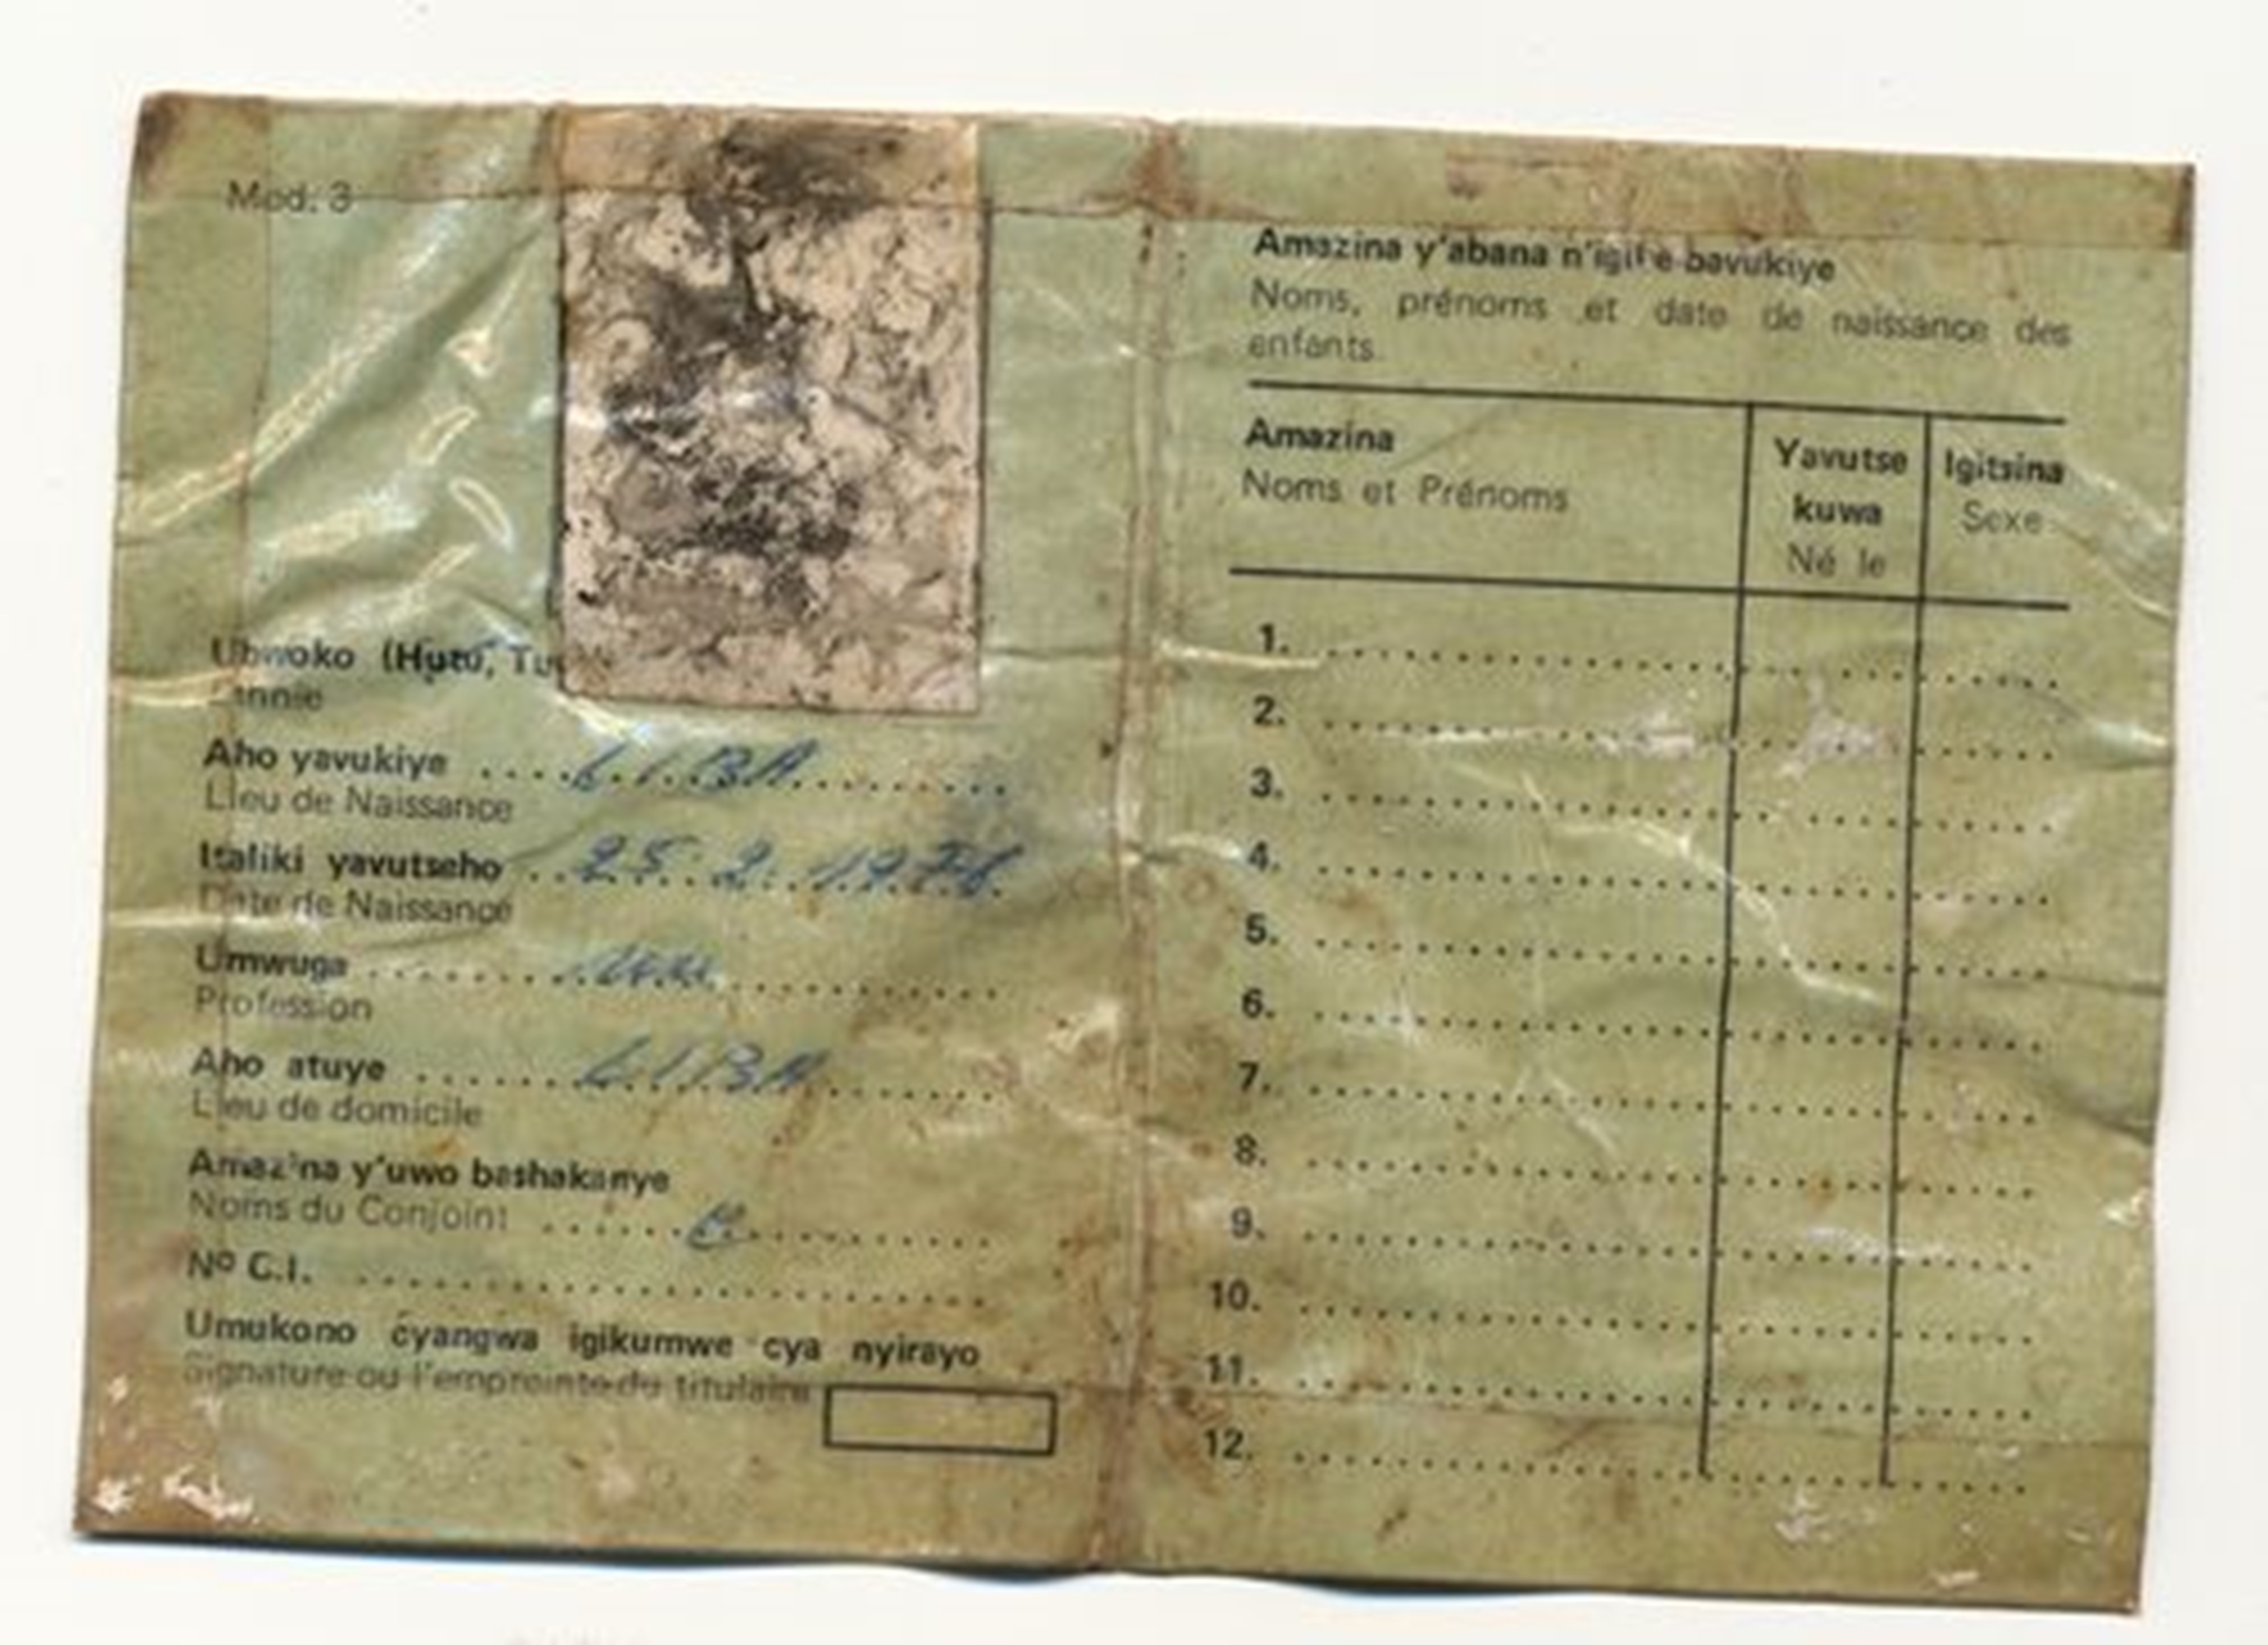 Mod. 3
Ubwoko (Hutu, Tu
Aho yavukiye
Lieu de Naissance
Italiki yavutseho 25. 2. 1976
Date de Naissance
Umwuga
Profession
Aho atuye
Lieu de domicile
Amazina y'uwo bashakanye
Noms du Conjoint
Nº C.I.
Umukono cyangwa igikumwe cya nyirayo
Signature ou l'empreinte du titulaire
Amazina y'abana n'igihe bavukiye
Noms, prénoms et date de naissance des
enfants
Amazina
Noms et Prénoms
Yavutse
kuwa
Né le
Igitsina
Sexe
1.
2.
3.
4.
5.
6.
7.
8.
9.
10.
11.
12.